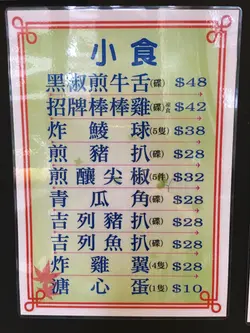 小食
黑椒煎牛舌(碟) $48
招牌棒棒雞(碟) $42
炸鯪球(5隻) $38
煎豬扒(碟) $28
煎釀尖椒(5件) $32
青瓜角(碟) $28
吉列豬扒(碟) $28
吉列魚扒(碟) $28
炸雞翼(4隻) $28
溏心蛋(1隻) $10